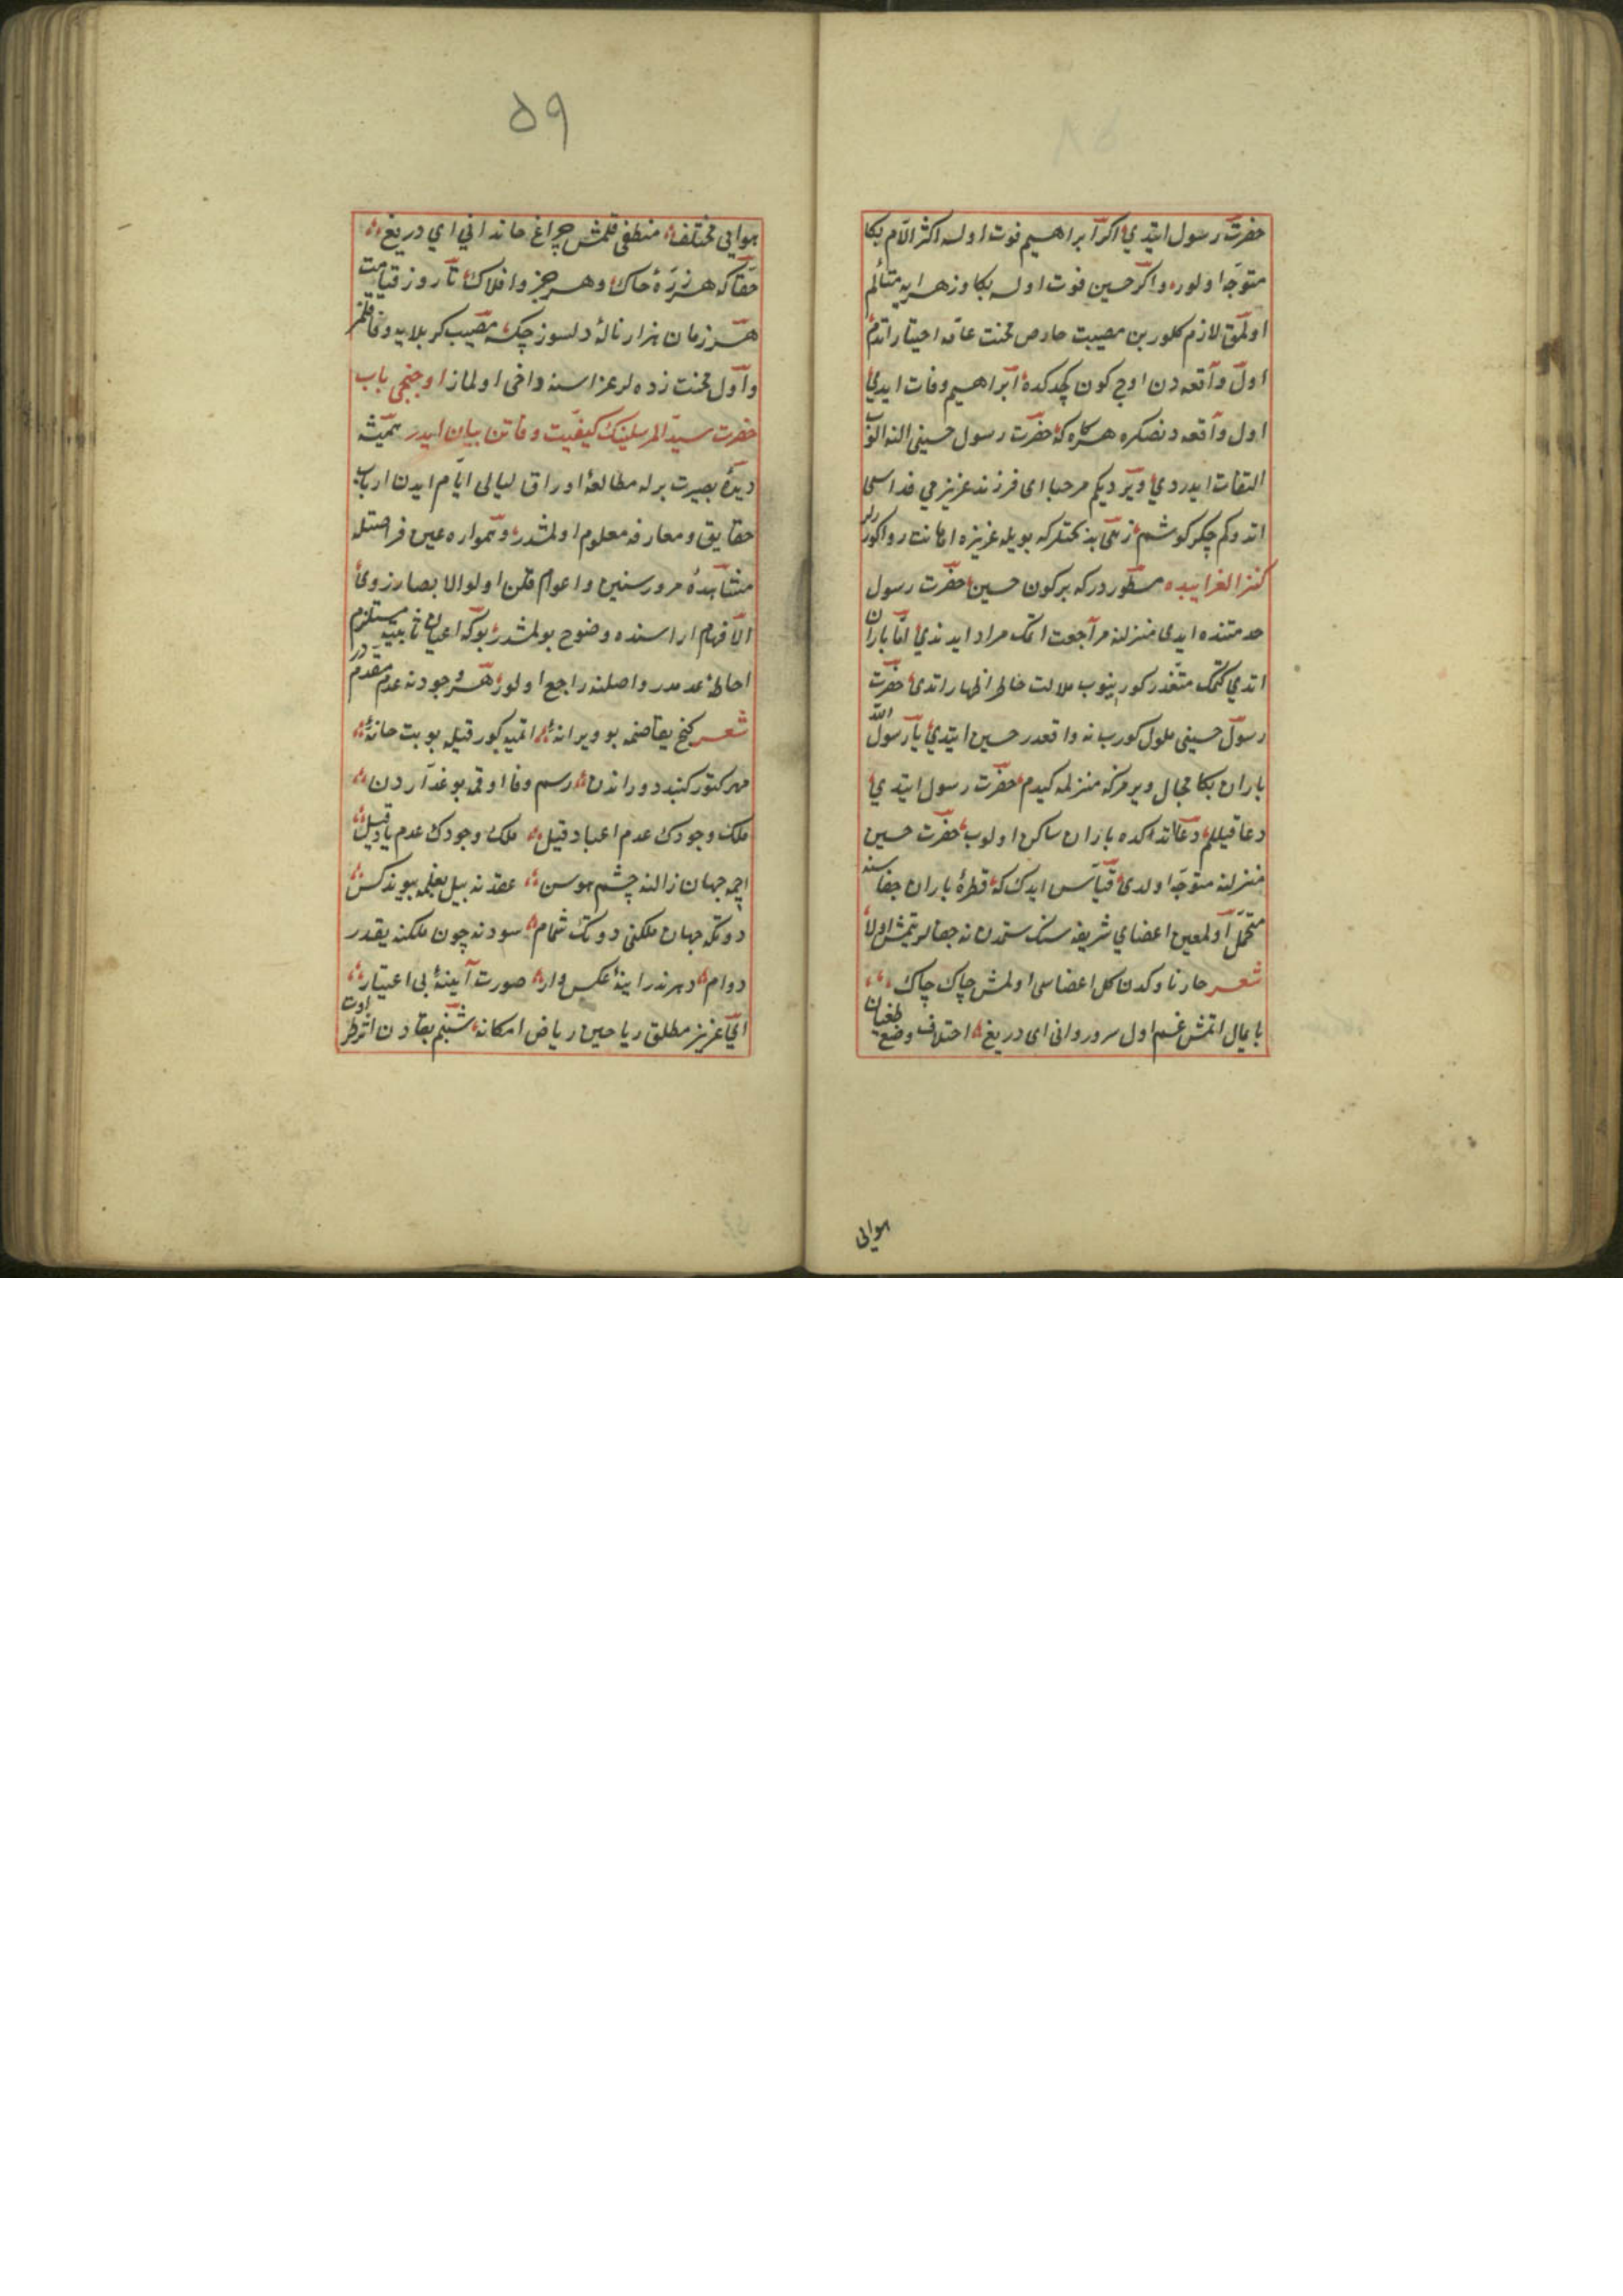 حضرت رسول ایتدی اکر ابراهیم فوت اولسه اکثر الام بکا
متوجه اولور و اکر حسین فوت اولسه بکا و زهرایه متألم
اولمق لازم کلور بن مصیبت خاص محنت عامه اختیار اتدم
اول واقعه دن اوچ کون کچدکده ابراهیم وفات ایدی
اول واقعه دنصکره هرکاه که حضرت رسول حسینی النه الوب
التفات ایدردی و یردیکم مرحبا ای فرزند عزیزمی فداسی
اتدوکم جکر کوشم زهی بدبختلرکه بویله عزیزه اهانت روا کورەلر
کنز الغرایبده مسطوردرکه برکون حسین حضرت رسول
خدمتنده ایدی منزلنه مراجعت اتمک مراد ایدندی اما باران
اتدی کتمک متعذر کورینوب ملالت خاطر اظهار اتدی حضرت
رسول حسینی ملول کورب نه واقعدر حسین ایتدی یا رسول الله
باران بکا مجال ویرمزکه منزلمه کیدم حضرت رسول ایتدی
دعا قیللم دعا اتدکده باران ساکن اولوب حضرت حسین
منزلنه متوجه اولدی قیاس ایدک که قطرهٔ باران جفاسنه
متحمل اولمین اعضای شریفه سنک ستمدن نه جفالر یتمش اولا
شعر خار ناوکدن کل اعضاسی اولمش چاک چاک
پایمال اتمش غم اول سرو روانی ای دریغ اختلاف وضع طغیان
هوایی
۵۹
هوایی مختلف منطفی قلمش چراغ خاندانی ای دریغ
حقا که هر ذرهٔ خاک و هر جز و افلاک تا روز قیامت
هر زمان هزار نالهٔ دلسوز چکسه مصیبت کربلایه وفا قلمز
و اول محنت زده لر عزاسنه وافی اولماز اوچنجی باب
حضرت سید المرسلینک کیفیت وفاتن بیان ایدر همیشه
دیدهٔ بصیرت برله مطالعهٔ اوراق لیالی ایام ایدن ارباب
حقایق و معارفه معلوم اولمشدر و همواره عین فراستله
مشاهدهٔ مرور سنین و اعوام قلن اولوالابصار ذوی
الافهام اراسنده وضوح بولمشدر بوکه اعیان ثابته مستلزم
احاطهٔ عدمدر و اصلنه راجع اولور هر وجودنه عدم مقدمدر
شعر کنج بقا صنمه بو ویرانهٔ اتمیه کور قبله بو بت خانهٔ
مهر کتور کنبد دوراندن رسم وفا اوقمه بو غداردن
ملک وجودک عدم اعباد قیل ملک وجودک عدم یاد قیل
اچمه جهان زالنه چشم هوس عقدنه بیل بغلمه پیوند کس
دوتکه جهان ملکنی دوتک تمام سودنه چون ملکنه یقدر
دوام دهرنده راینهٔ عکس وار صورت آیینهٔ بی اعتبار
ای عزیز مطلق ریاحین ریاض امکانه شبنم بقادن اثر یوق